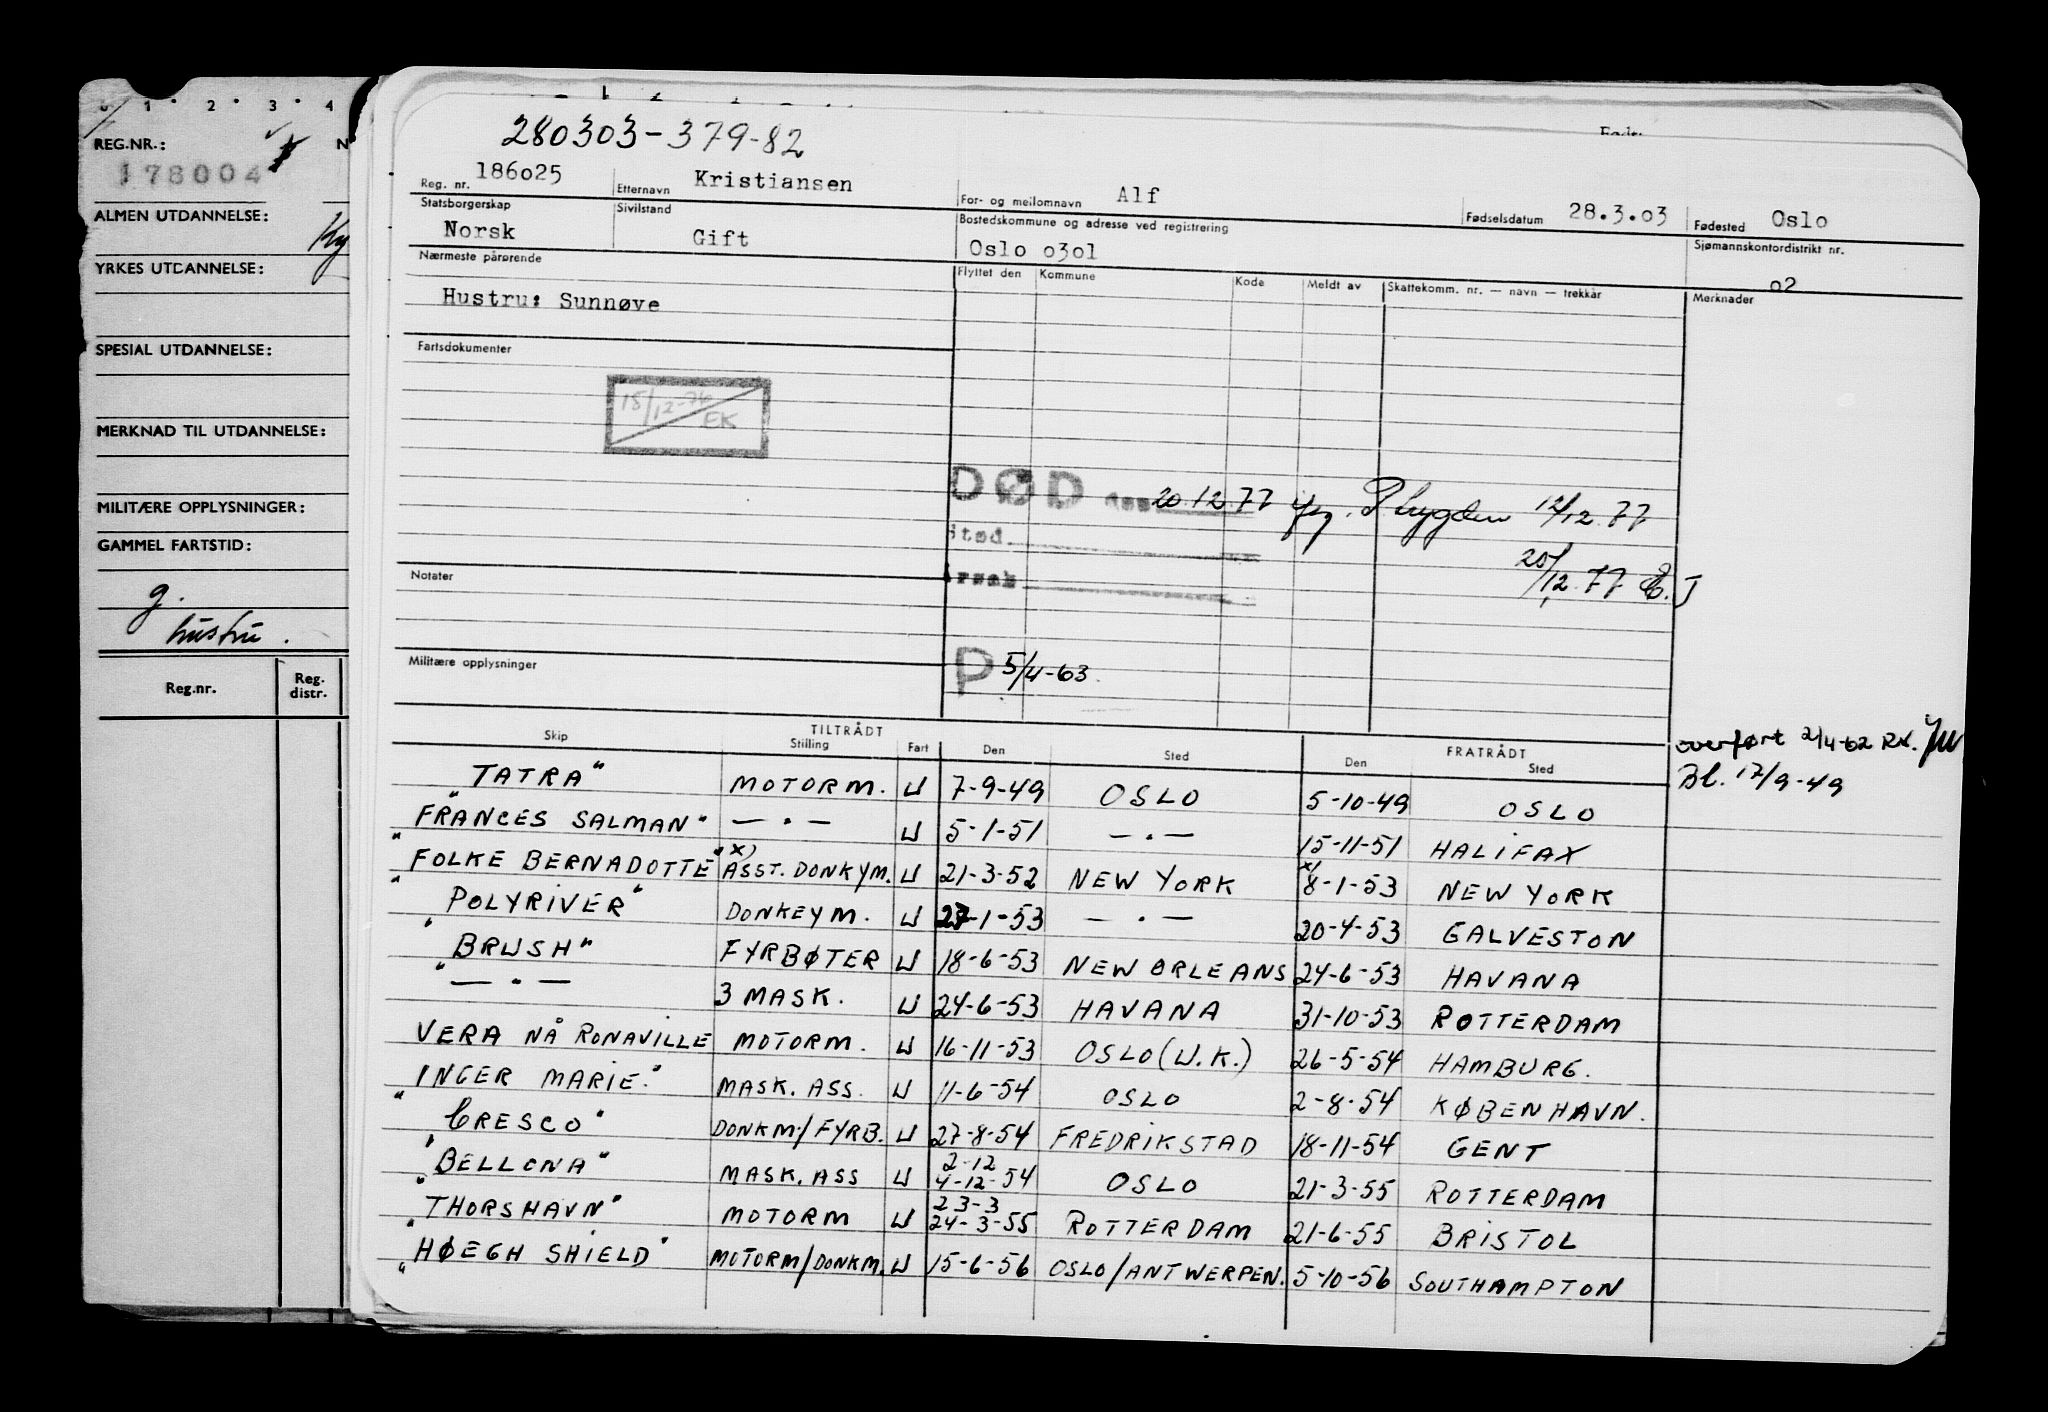 0 1 2 3 4
REG.NR.: N
178004
ALMEN UTDANNELSE:
Ky
YRKES UTDANNELSE:
SPESIAL UTDANNELSE:
MERKNAD TIL UTDANNELSE:
MILITÆRE OPPLYSNINGER:
GAMMEL FARTSTID:
g.
hustru.
Reg.nr. Reg. distr.
280303-379-82
Reg. nr. 186o25 Etternavn Kristiansen For- og mellomnavn Alf Fødselsdatum 28.3.o3 Fødested Oslo
Statsborgerskap Sivilstand Bostedskommune og adresse ved registrering Sjømannskontordistrikt nr.
Norsk Gift Oslo o3o1 o2
Nærmeste pårørende Flyttet den Kommune Kode Meldt av Skattekomm. nr. — navn — trekkår Merknader
Hustru: Sunnøve
Fartsdokumenter
15/12-76 EK
DØD den 20.12.77 12/12.77
Sted
Årsak 20/12.77 E.J
Notater
Militære opplysninger
P 5/4-63.
overført 2/4-62 RK.
Bl. 17/9-49
TILTRÅDT FRATRÅDT
Skip Stilling Fart Den Sted Den Sted
"TATRA" MOTORM. U 7-9-49 OSLO 5-10-49 OSLO
"FRANCES SALMAN" — . — U 5-1-51 — . — 15-11-51 HALIFAX
"FOLKE BERNADOTTE" x) ASST. DONKYM. U 21-3-52 NEW YORK x) 8-1-53 NEW YORK
"POLYRIVER" DONKEYM. U 27-1-53 — . — 20-4-53 GALVESTON
"BRUSH" FYRBØTER U 18-6-53 NEW ORLEANS 24-6-53 HAVANA
" — . — 3 MASK. U 24-6-53 HAVANA 31-10-53 ROTTERDAM
VERA NÅ RONAVILLE MOTORM. U 16-11-53 OSLO (U.K.) 26-5-54 HAMBURG.
"INGER MARIE." MASK. ASS. U 11-6-54 OSLO 2-8-54 KØBENHAVN.
"CRESCO" DONKM/FYRB. U 27-8-54 FREDRIKSTAD 18-11-54 GENT
"BELLONA" MASK. ASS U 2-12 4-12-54 OSLO 21-3-55 ROTTERDAM
"THORSHAVN" MOTORM U 23-3 24-3-55 ROTTERDAM 21-6-55 BRISTOL
"HØEGH SHIELD" MOTORM/DONKM. U 15-6-56 OSLO/ANTWERPEN. 5-10-56 SOUTHAMPTON